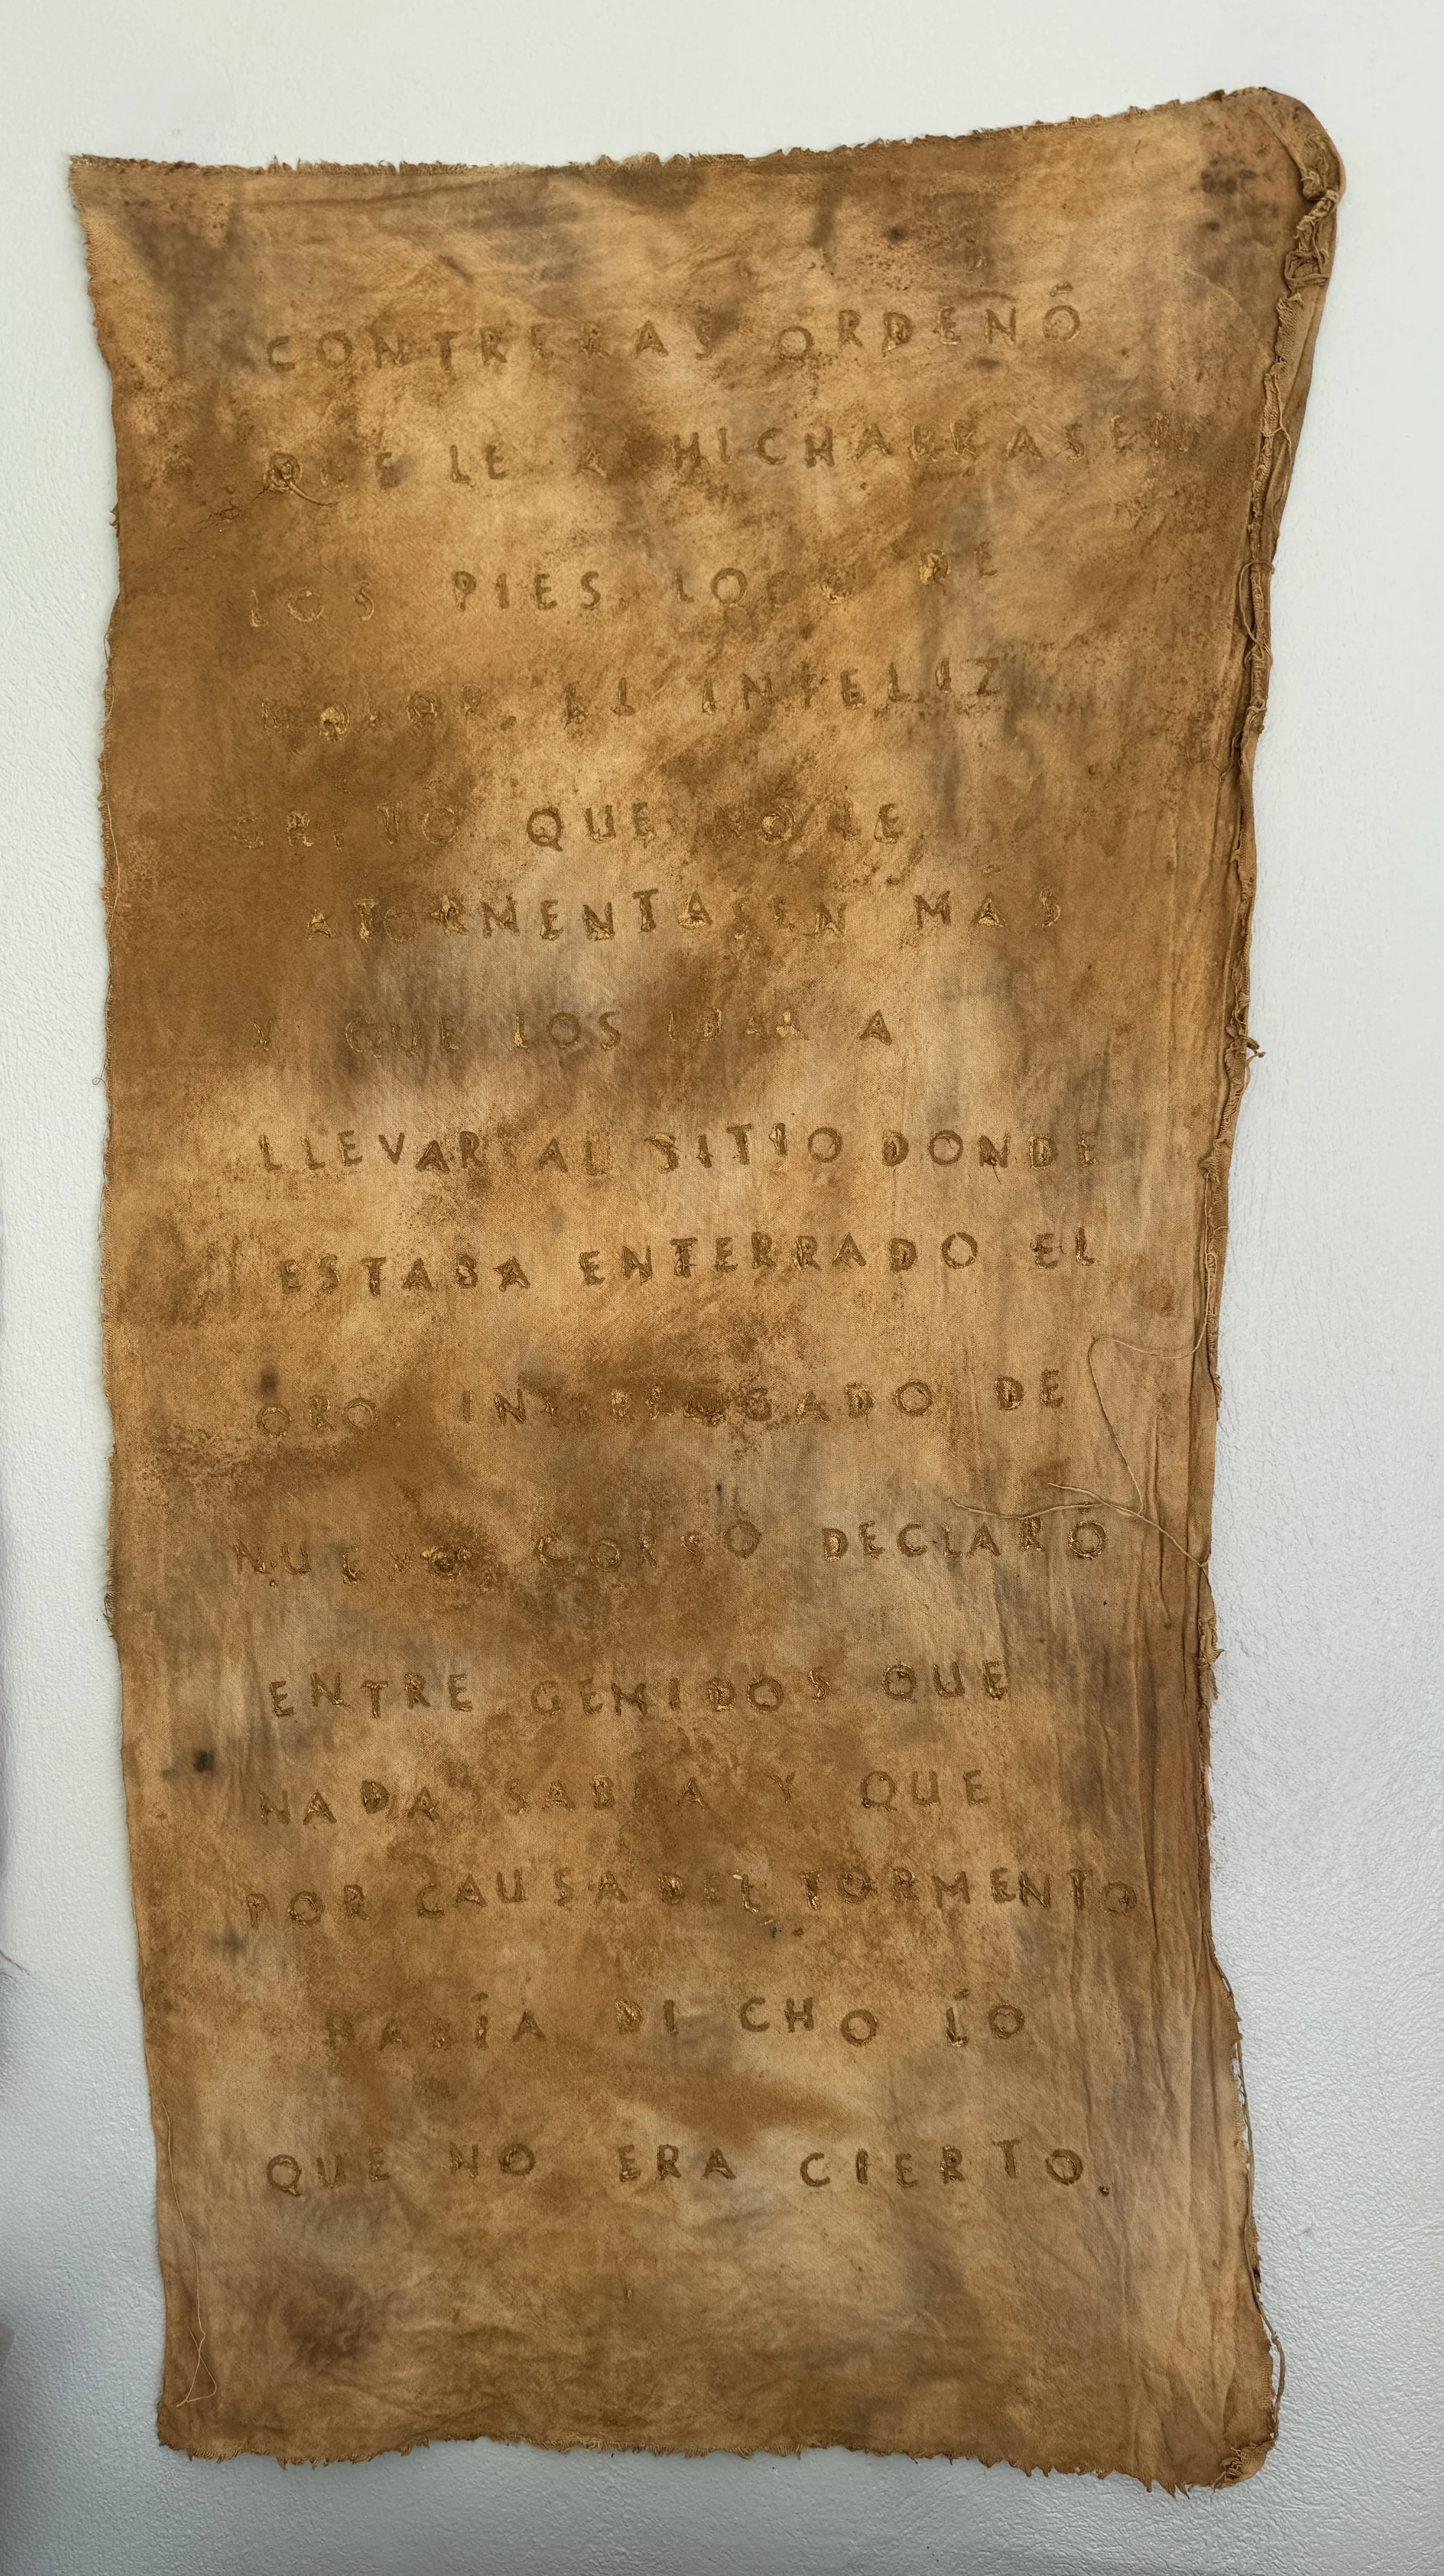 CONTRERAS ORDENÓ
QUE LE A HICHARRASEN
LOS PIES. LOCO DE
DOLOR, EL INFELIZ
GRITÓ QUE NO LE
ATORMENTASEN MÁS
Y QUE LOS IBA A
LLEVAR AL SITIO DONDE
ESTABA ENTERRADO EL
ORO. INTERROGADO DE
NUEVO CORSO DECLARÓ
ENTRE GEMIDOS QUE
NADA SABÍA Y QUE
POR CAUSA DEL TORMENTO
HABÍA DICHO LO
QUE NO ERA CIERTO.